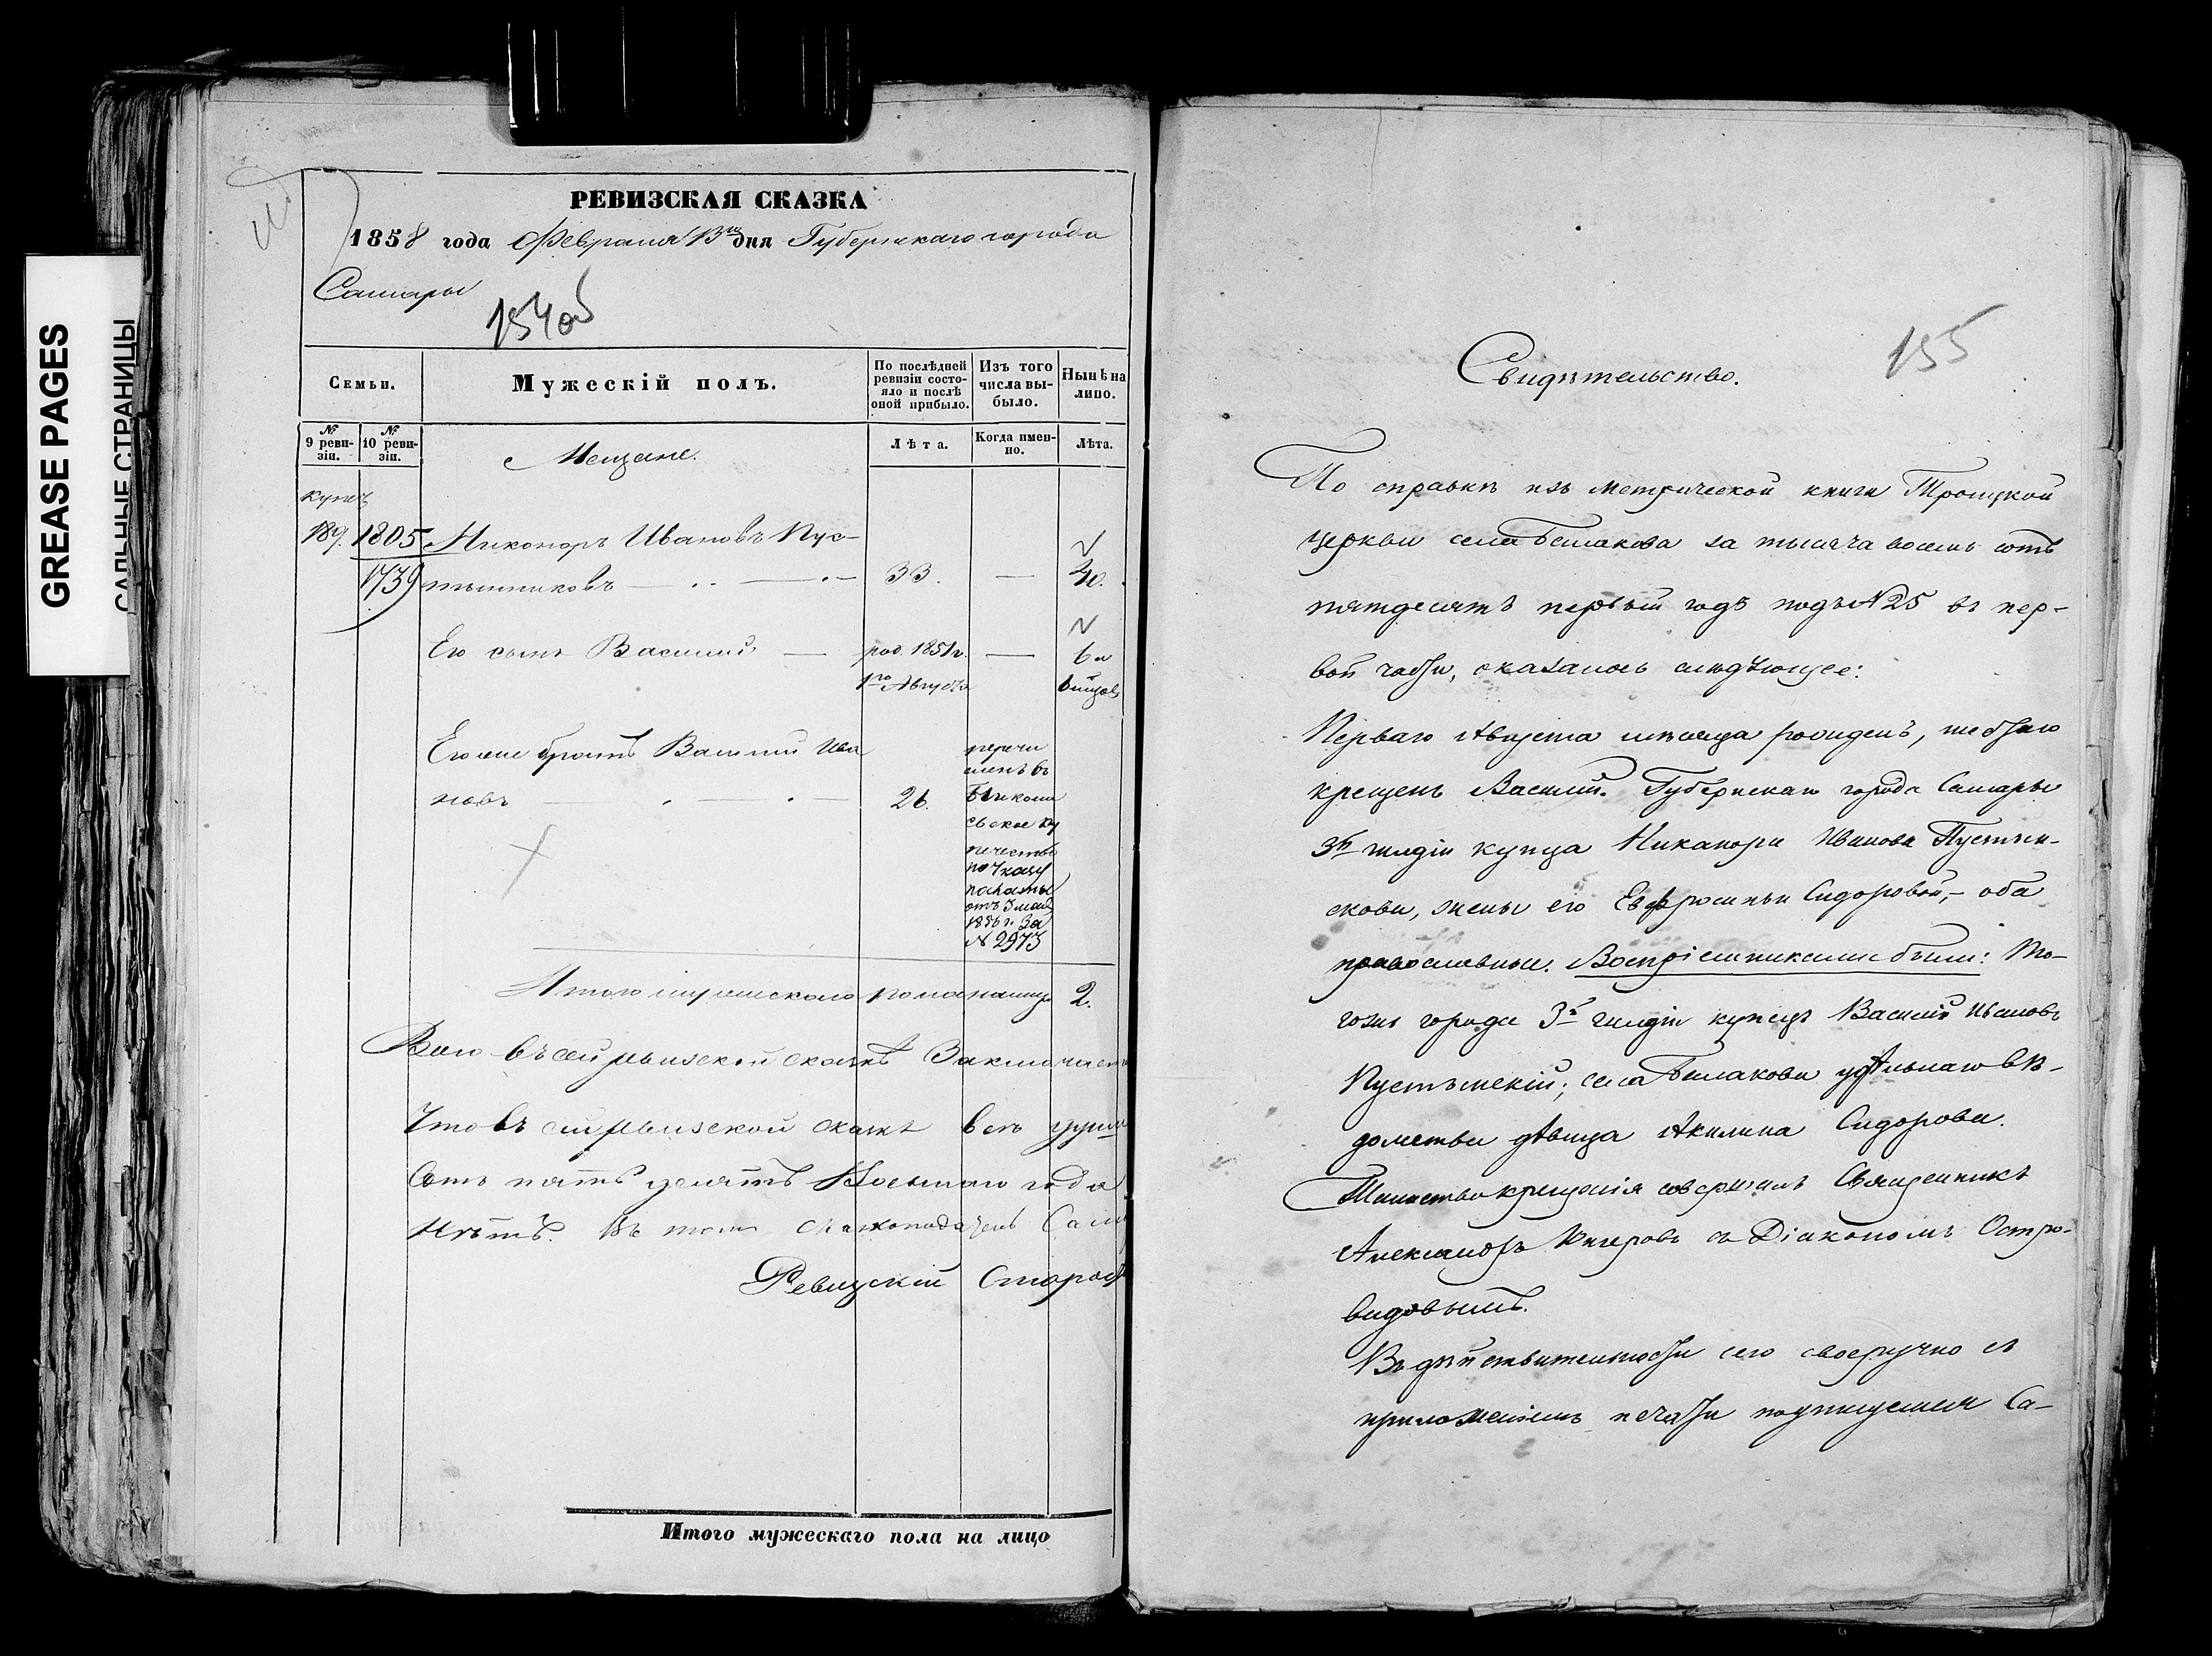 GREASE PAGES
САЛЬНЫЕ СТРАНИЦЫ
РЕВИЗСКАЯ СКАЗКА
1858 года Февраля 13го дня Губернскаго города
Самары
154об
Семьи.
Мужескій полъ.
По послѣдней ревизіи состояло и послѣ оной прибыло.
Изъ того числа выбыло.
Нынѣ на лицо.
№ 9 ревизіи.
№ 10 ревизіи.
Мещане.
Лѣта.
Когда именно.
Лѣта.
купеч
189. 1805 Никоноръ Ивановъ Пус-
1739 тынниковъ 33. — 40.
Его сынъ Василий — род. 1851г. — 6 и
1го Августа
Его же братъ Василий Ива
новъ 26.
перечи
сленъ въ
Никола
евское ку
печество
по Указу
палаты
отъ 3 мая
1856 г. За
№ 2973
Итого мужескаго пола налицо 2.
Всего въ сей ревизской сказкѣ Заключает
Что въ сей ревизской сказке всѣ души
сотъ пять десятъ Восьмаго года
Ревизскій Старос
Итого мужескаго пола на лицо
155
Свидѣтельство.
По справкѣ изъ метрической книги Троицкой
церкви села Балакова за тысяча восемь сотъ
пятдесятъ первый годъ подъ №25 въ пер-
вой части, оказалось слѣдующее:
Перваго Августа мѣсяца рожденъ, шестаго
крещенъ Василий. Губернскаго города Самары
3й гилдіи купца Никанора Иванова Пустын-
скова, жены его Евфросиньи Сидоровой, – оба
православные. Воспріемниками были: То-
гоже города 3й гилдіи купецъ Василій Ивановъ
Пустынскій; села Балакова удѣльнаго вѣ-
домства дѣвица Акилина Сидорова.
Таинство крещенія совершалъ Священникъ
Александръ съ Діакономъ Остро-
видовымъ.
Въ действительности сего своеручно съ
приложеніемъ печати подписуемся Са-